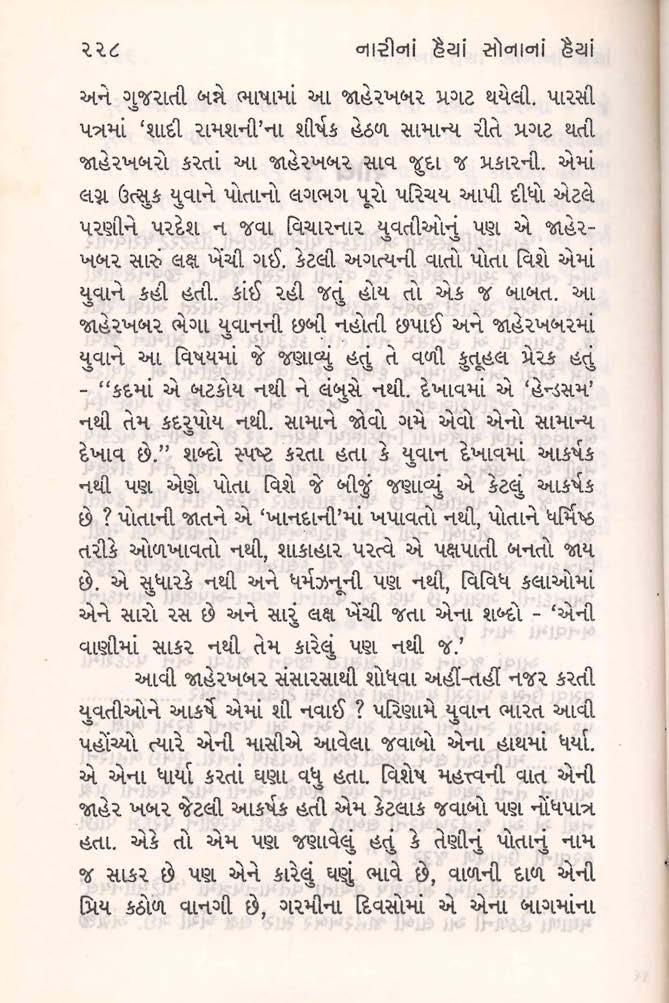 ૨૨૮ નારીનાં હૈયાં સોનાનાં હૈયાં
અને ગુજરાતી બન્ને ભાષામાં આ જાહેરખબર પ્રગટ થયેલી. પારસી
પત્રમાં ‘શાદી રામશની’ના શીર્ષક હેઠળ સામાન્ય રીતે પ્રગટ થતી
જાહેરખબરો કરતાં આ જાહેરખબર સાવ જુદા જ પ્રકારની. એમાં
લગ્ન ઉત્સુક યુવાને પોતાનો લગભગ પૂરો પરિચય આપી દીધો એટલે
પરણીને પરદેશ ન જવા વિચારનાર યુવતીઓનું પણ એ જાહેર-
ખબર સારું લક્ષ ખેંચી ગઈ. કેટલી અગત્યની વાતો પોતા વિશે એમાં
યુવાને કહી હતી. કાંઈ રહી જતું હોય તો એક જ બાબત. આ
જાહેરખબર ભેગા યુવાનની છબી નહોતી છપાઈ અને જાહેરખબરમાં
યુવાને આ વિષયમાં જે જણાવ્યું હતું તે વળી કુતૂહલ પ્રેરક હતું
- ‘‘કદમાં એ બટકોય નથી ને લંબુસે નથી. દેખાવમાં એ ‘હેન્ડસમ’
નથી તેમ કદરુપોય નથી. સામાને જોવો ગમે એવો એનો સામાન્ય
દેખાવ છે.’’ શબ્દો સ્પષ્ટ કરતા હતા કે યુવાન દેખાવમાં આકર્ષક
નથી પણ એણે પોતા વિશે જે બીજું જણાવ્યું એ કેટલું આકર્ષક
છે ? પોતાની જાતને એ ‘ખાનદાની’માં ખપાવતો નથી, પોતાને ધર્મિષ્ઠ
તરીકે ઓળખાવતો નથી, શાકાહાર પરત્વે એ પક્ષપાતી બનતો જાય
છે. એ સુધારકે નથી અને ધર્મઝનૂની પણ નથી, વિવિધ કલાઓમાં
એને સારો રસ છે અને સારું લક્ષ ખેંચી જતા એના શબ્દો - ‘એની
વાણીમાં સાકર નથી તેમ કારેલું પણ નથી જ.’
આવી જાહેરખબર સંસારસાથી શોધવા અહીં-તહીં નજર કરતી
યુવતીઓને આકર્ષે એમાં શી નવાઈ ? પરિણામે યુવાન ભારત આવી
પહોંચ્યો ત્યારે એની માસીએ આવેલા જવાબો એના હાથમાં ધર્યા.
એ એના ધાર્યા કરતાં ઘણા વધુ હતા. વિશેષ મહત્ત્વની વાત એની
જાહેર ખબર જેટલી આકર્ષક હતી એમ કેટલાક જવાબો પણ નોંધપાત્ર
હતા. એકે તો એમ પણ જણાવેલું હતું કે તેણીનું પોતાનું નામ
જ સાકર છે પણ એને કારેલું ઘણું ભાવે છે, વાળની દાળ એની
પ્રિય કઠોળ વાનગી છે, ગરમીના દિવસોમાં એ એના બાગમાંના